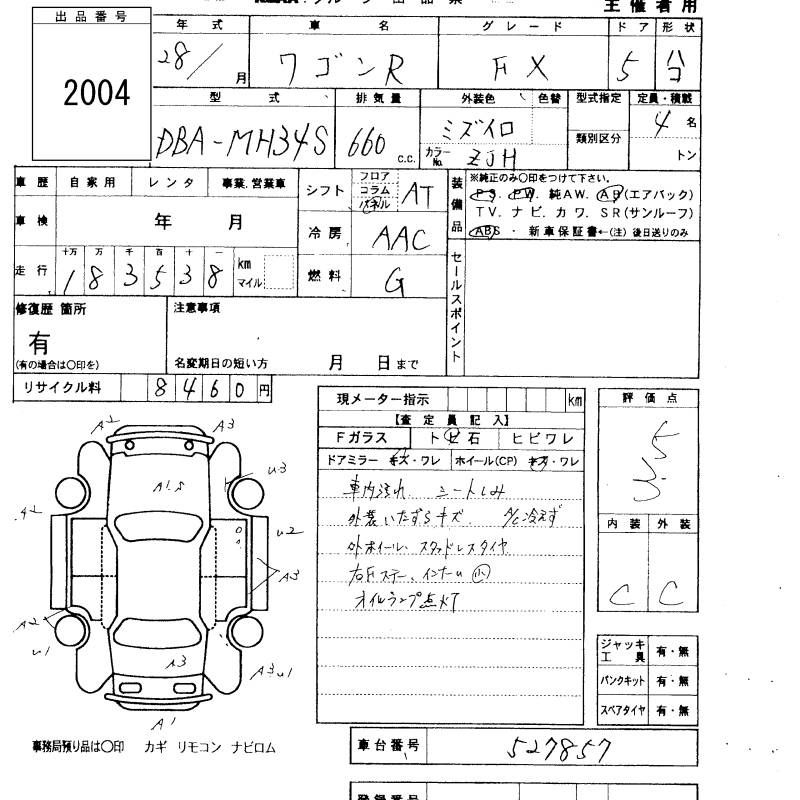 主催者用
出品番号
2004
年式 車名 グレード ドア 形状
28/ 月 ワゴンR FX 5 ハコ
型式 排気量 外装色 色替 型式指定 定員・積載
DBA-MH34S 660 c.c. ミズイロ 類別区分 4 名
カラーNo. ZJH トン
車歴 自家用 レンタ 事業.営業車
シフト フロア コラム パネル AT
装備品 ※純正のみ〇印をつけて下さい。
PS. PW. 純AW. AB(エアバック)
TV. ナビ. カワ. SR(サンルーフ)
ABS ・ 新車保証書←(注) 後日送りのみ
車検 年 月
冷房 AAC
走行 十万 万 千 百 十 一
183538 km マイル
燃料 G
セールスポイント
修復歴 箇所
有
(有の場合は〇印を)
注意事項
名変期日の短い方 月 日まで
リサイクル料 8460円
現メーター指示 km
【査定員記入】
Fガラス トビ石 ヒビワレ
ドアミラー キズ・ワレ ホイール(CP) キズ・ワレ
車内汚れ シートしみ
外装いたずらキズ A/C冷えず
外ホイール、スタッドレスタイヤ
右Fステー、インナー(小)
オイルランプ点灯
評価点
3.5
内装 外装
C C
ジャッキ工具 有・無
パンクキット 有・無
スペアタイヤ 有・無
A2 A3
A1.S
U3
A2
U2
A3
A2
U1
A3
A3U1
A1
事務局預り品は〇印 カギ リモコン ナビロム
車台番号 527857
登録番号